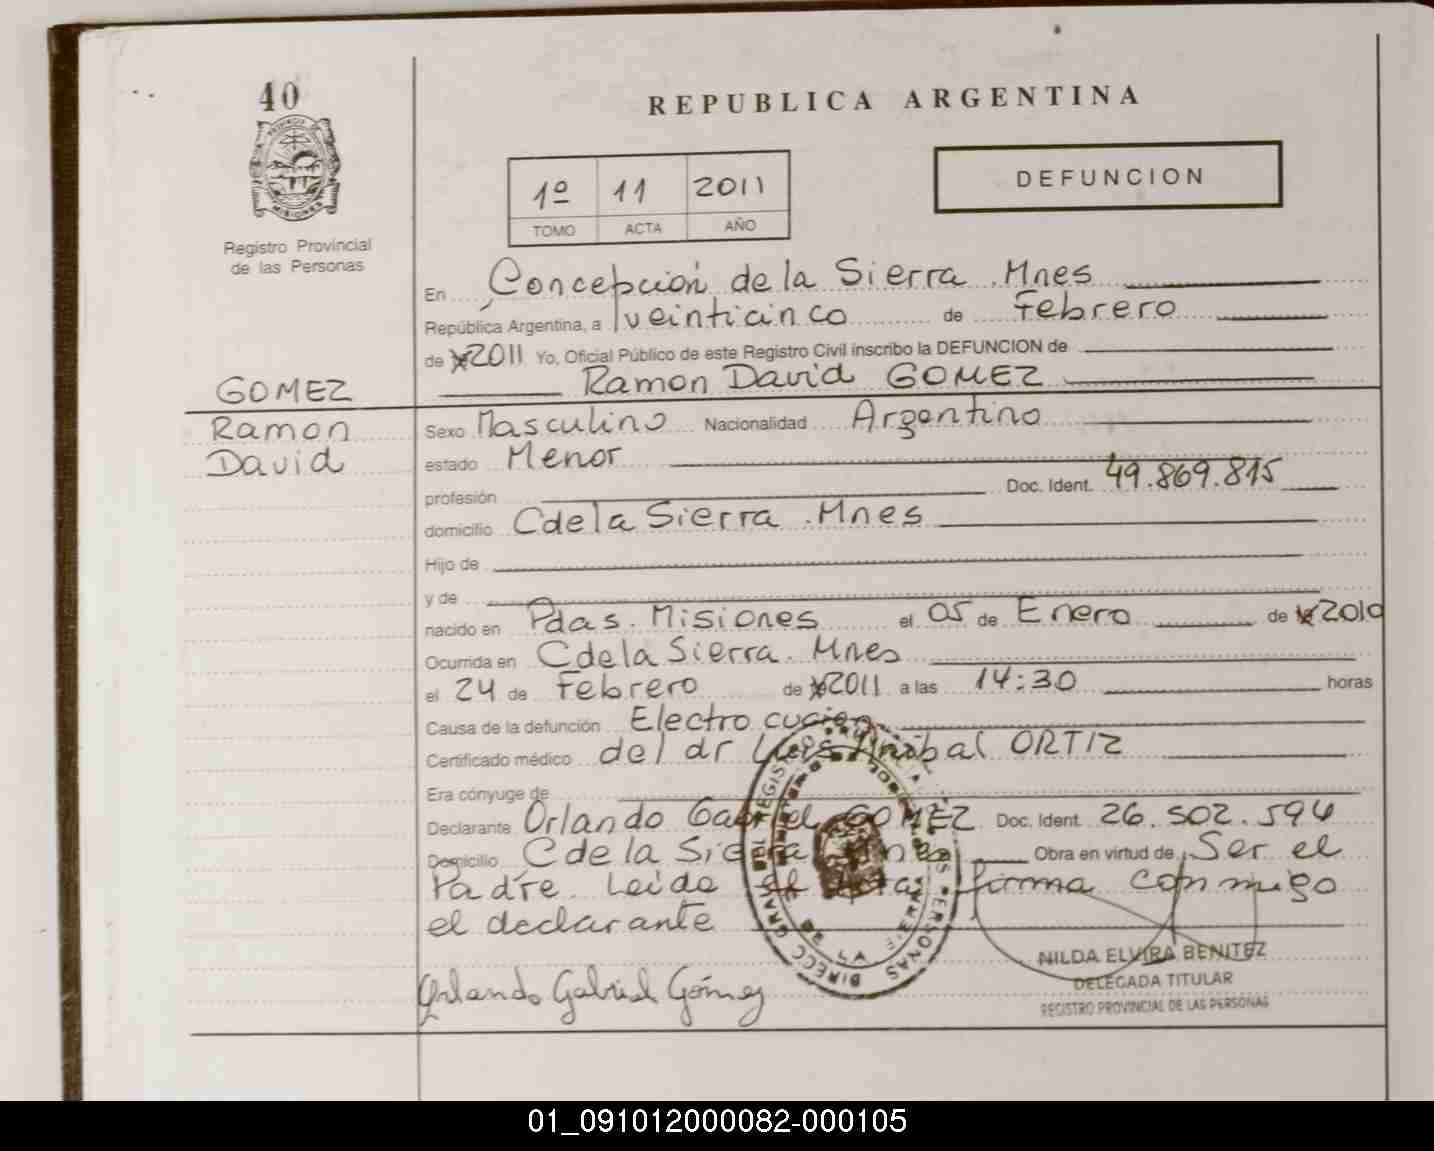 40
REPUBLICA ARGENTINA
PROVINCIA DE
MISIONES
Registro Provincial
de las Personas
1º 11 2011
TOMO ACTA AÑO
DEFUNCION
En Concepción de la Sierra. Mnes
República Argentina, a veinticinco de Febrero
de 2011 Yo, Oficial Público de este Registro Civil inscribo la DEFUNCION de
Ramon David GOMEZ
GOMEZ
Ramon
David
Sexo Masculino Nacionalidad Argentino
estado Menor
profesión Doc. Ident. 49.869.815
domicilio C de la Sierra. Mnes
Hijo de
y de
nacido en Pdas. Misiones el 05 de Enero de 2010
Ocurrida en C de la Sierra. Mnes
el 24 de Febrero de 2011 a las 14:30 horas
Causa de la defunción Electrocucion
Certificado médico del dr Luis Anibal ORTIZ
Era cónyuge de
Declarante Orlando Gabriel GOMEZ Doc. Ident. 26.502.594
Domicilio C de la Sierra Mnes Obra en virtud de Ser el
Padre. Leida el Acta, firma conmigo
el declarante
Orlando Gabriel Gómez
NILDA ELVIRA BENITEZ
DELEGADA TITULAR
REGISTRO PROVINCIAL DE LAS PERSONAS
01_091012000082-000105